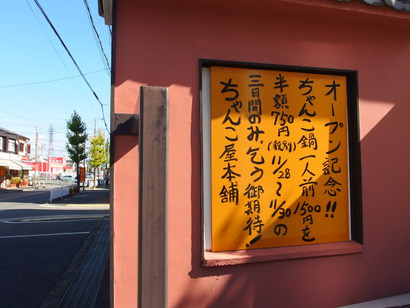 オープン記念!!
ちゃんこ鍋一人前1500円を
半額750円(税別)11/28~11/30の
三日間のみ、乞う御期待!
ちゃんこ屋本舗